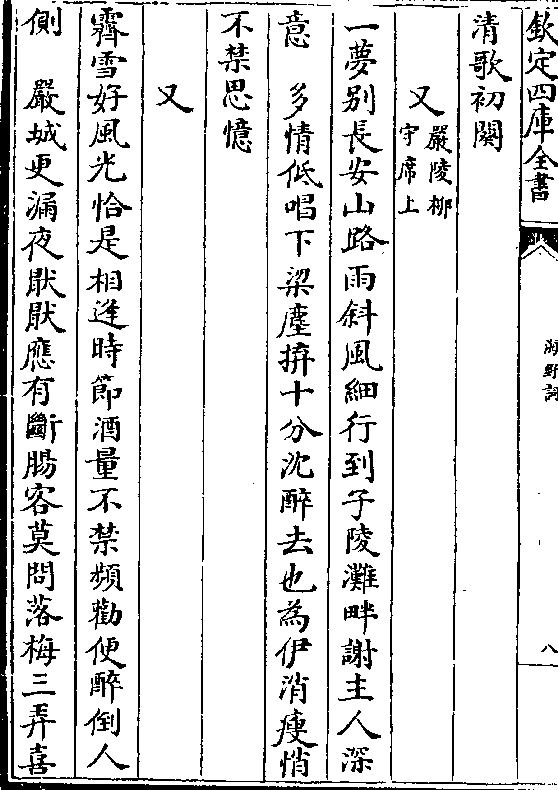 欽定四庫全書
海野詞
八
清歌初闋
又嚴陵柳
守席上
一夢別長安山路雨斜風細行到子陵灘畔謝主人深
意　多情低唱下梁塵拚十分沈醉去也為伊消瘦悄
不禁思憶
又
霽雪好風光恰是相逢時節酒量不禁頻勸便醉倒人
側　嚴城更漏夜厭厭應有斷腸客莫問落梅三弄喜